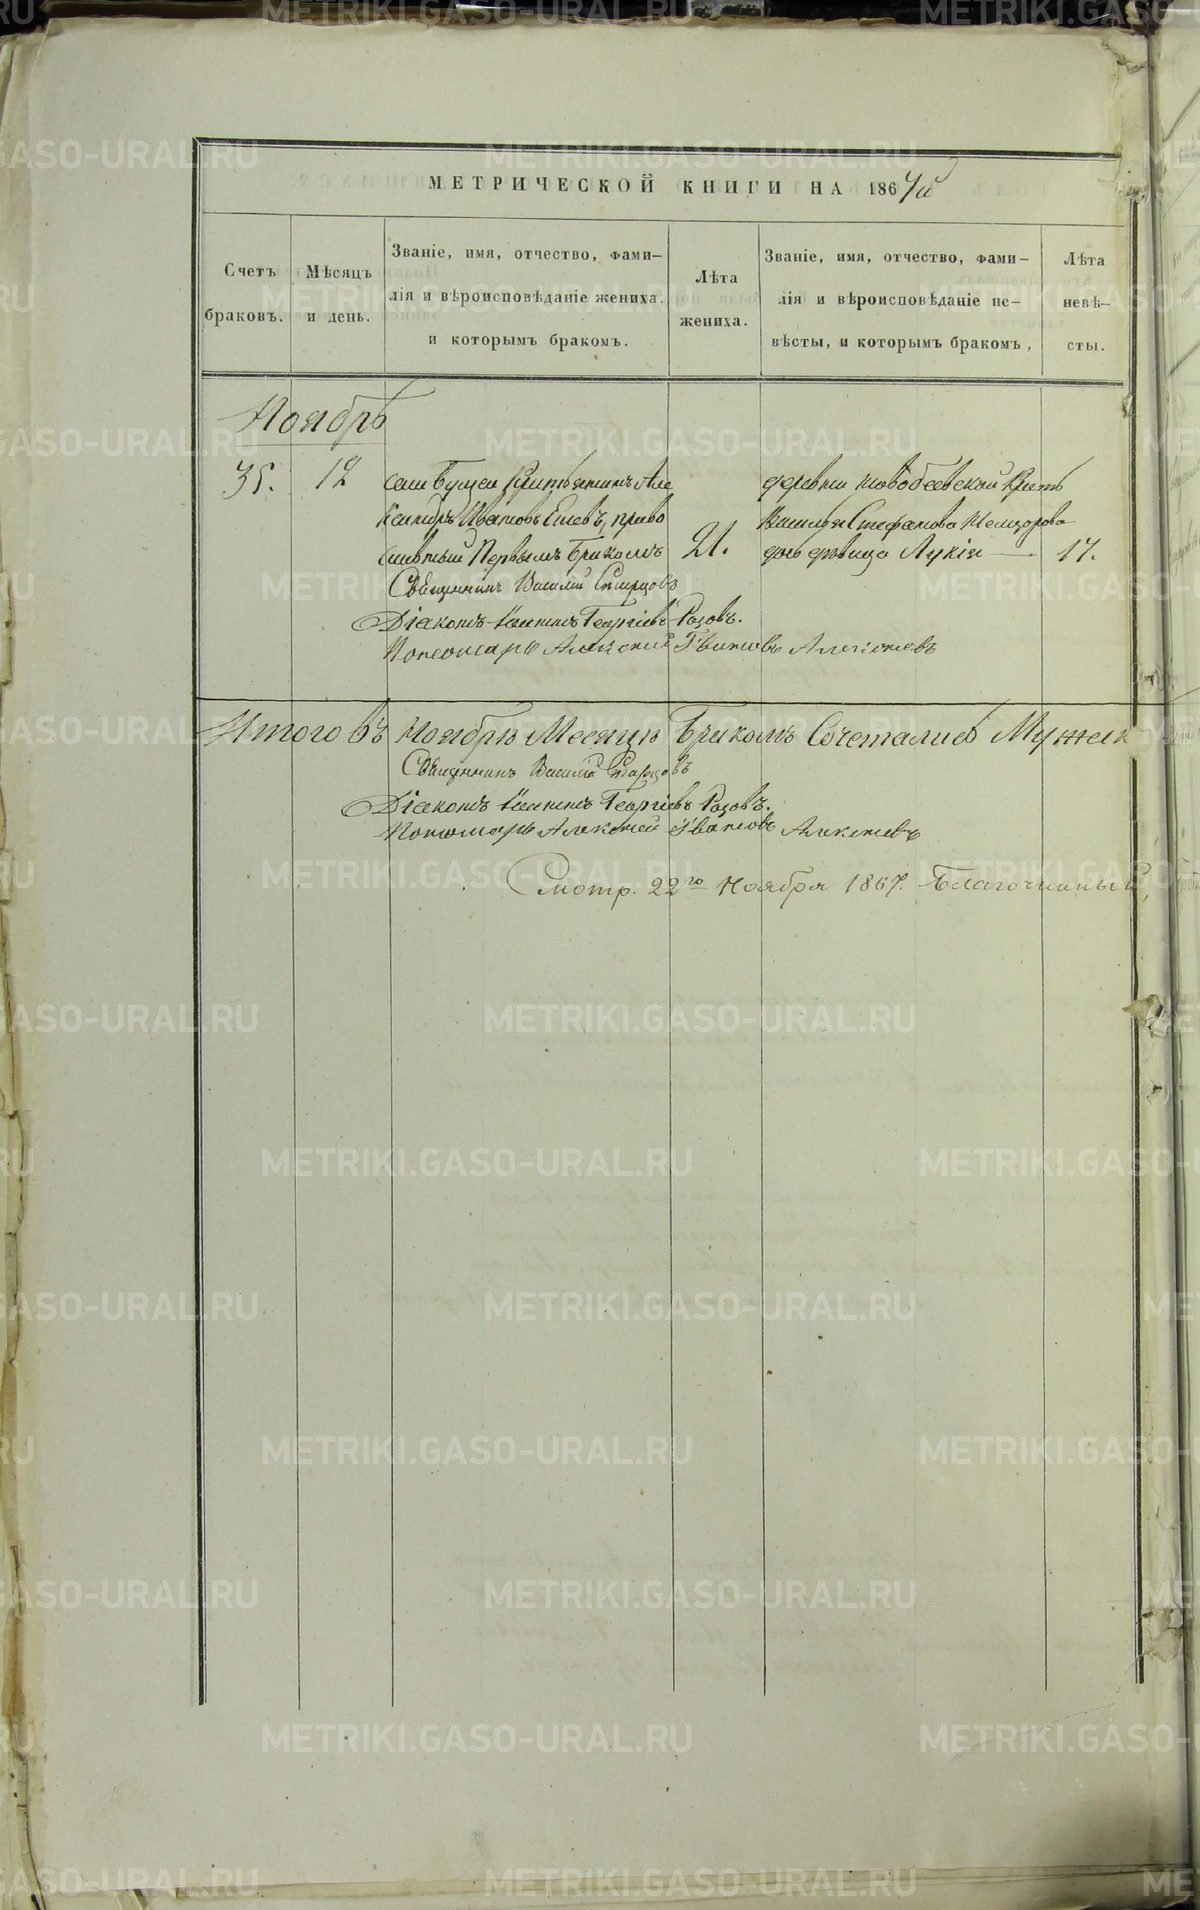 МЕТРИЧЕСКОЙ КНИГИ НА 1867й
Счетъ браковъ.
Мѣсяцъ и день.
Званіе, имя, отчество, фами-
лія и вѣроисповѣданіе жениха,
и которымъ бракомъ.
Лѣта жениха.
Званіе, имя, отчество, фами-
лія и вѣроисповѣданіе не-
вѣсты, и которымъ бракомъ,
Лѣта невѣ-
сты.
Ноябрь
35. 12
Але
ксандръ Ивановъ право
славный Первымъ Бракомъ
21.
деревни Крѣсть
Стефанова
дочь дѣвица Лукія
17.
Священникъ Василій
Діаконъ Георгіевъ Розовъ.
Пономарь Алексей Ивановъ Алексеевъ
Итого въ Ноябрѣ Месяцѣ Бракомъ Сочеталисѣ Мужеск
Священникъ Василій
Діаконъ Георгіевъ Розовъ.
Пономарь Алексей Ивановъ Алексеевъ
Смотр. 22го Ноября 1867. Благочинный
METRIKI.GASO-URAL.RU